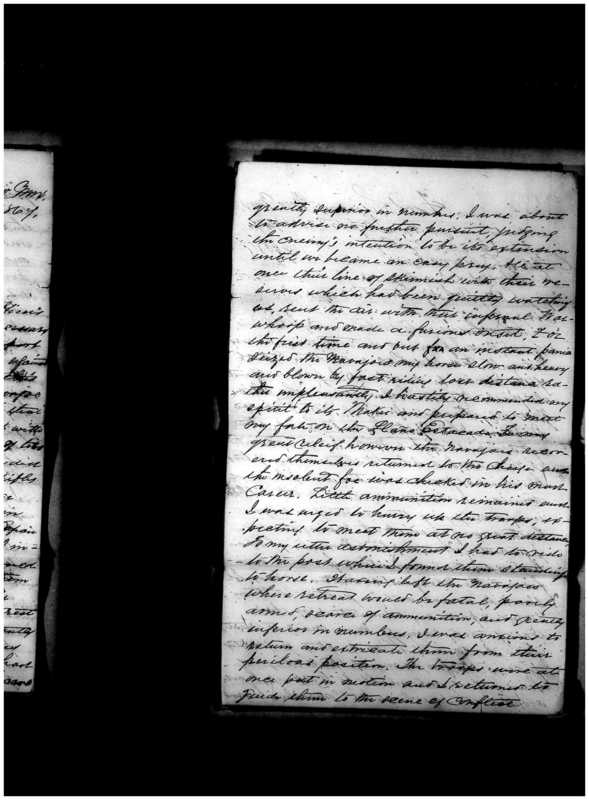 greatly superior in number. I was about
to advise no further pursuit, judging
the enemy's intention to be its extension
until we became an easy prey. At
once their line of skirmish with their re-
serves which had been quietly watching
us, rent the air with their infernal War
whoop and made a furious onset. For
the first time and but for an instant panic
seized the Navajoes my horse slow and heavy
and blown by fast riding lost distance ra-
ther unpleasantly. I hastily recommended my
spirit to its Maker and prepared to meet
my fate on the Llano Estacado. To my
great relief however the Navajoes recov-
ered themselves returned to the charge and
the insolent foe was checked in his mad
Career. Little ammunition remained and
I was urged to hurry up the troops, ex-
pecting to meet them at no great distance
To my utter astonishment I had to ride
to the post where I found them standing
to horse. Having left the Navajoes
where retreat would be fatal, poorly
armed, scarce of ammunition, and greatly
inferior in numbers, I was anxious to
return and extricate them from their
perilous position. The troops were at
once put in motion and I returned to
guide them to the scene of conflict